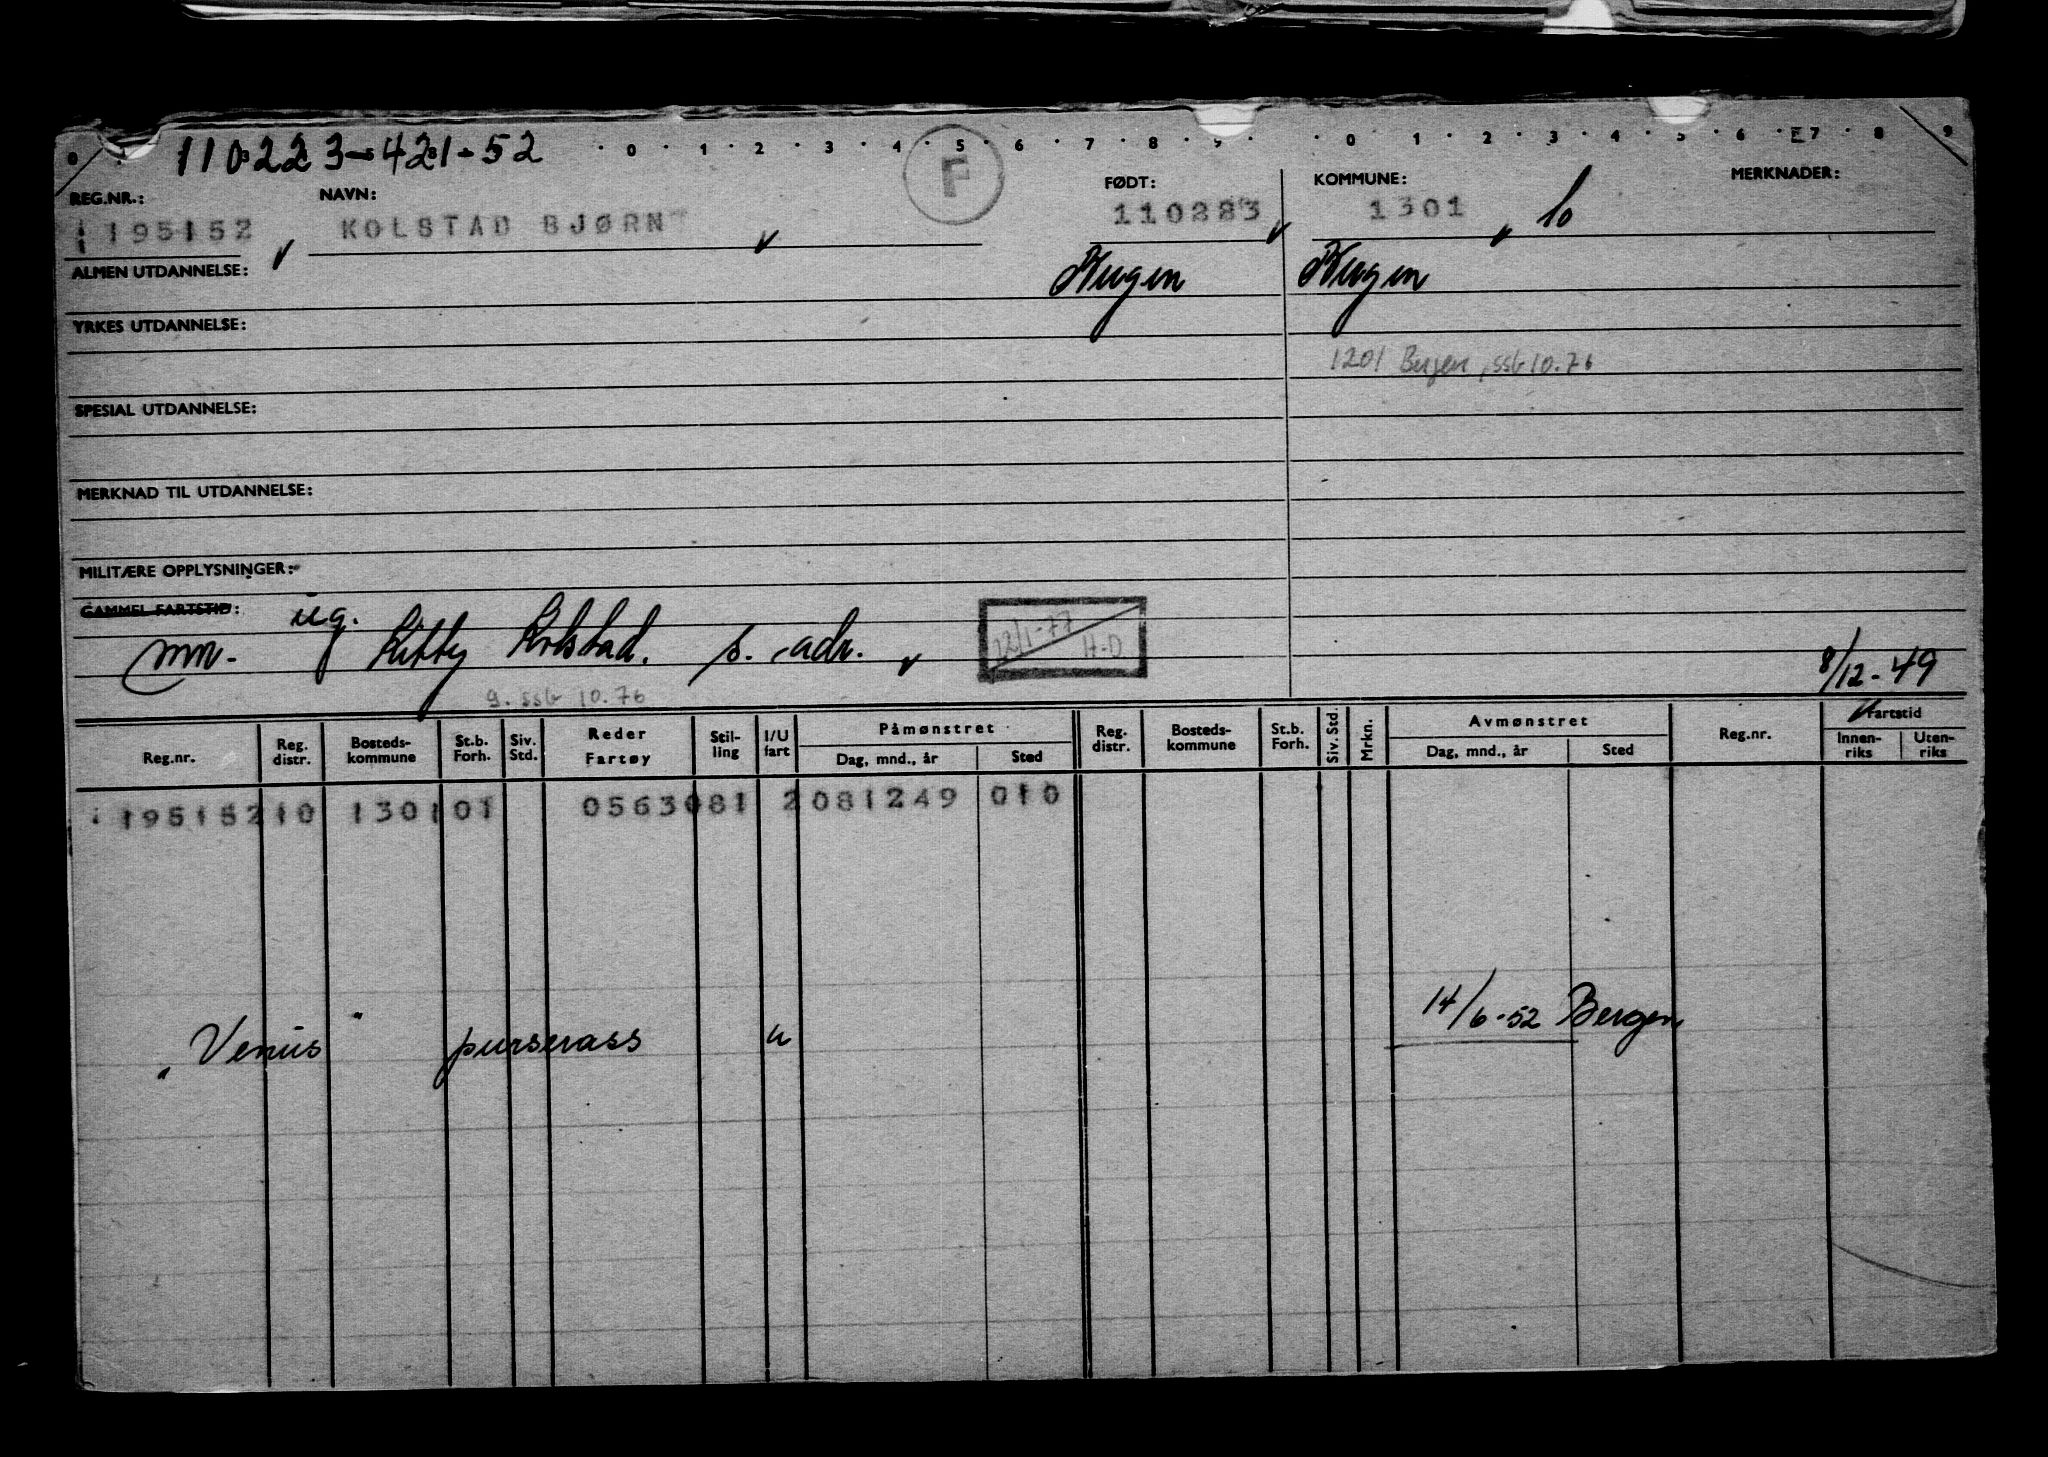 110223-421-52
0 · 0 · 1 · 2 · 3 · 4 · 5 · 6 · 7 · 8 · 9 · · 0 · 1 · 2 · 3 · 4 · 5 · 6 · 7 · 8 · 9
F
REG.NR.: NAVN: FØDT: KOMMUNE: MERKNADER:
195152 KOLSTAD BJØRN 110223 1301
ALMEN UTDANNELSE: Bergen Bergen
YRKES UTDANNELSE:
1201 Bergen, ssb 10.76
SPESIAL UTDANNELSE:
MERKNAD TIL UTDANNELSE:
MILITÆRE OPPLYSNINGER:
GAMMEL FARTSTID: ug.
Kitty Kolstad. s. adr. 22/1-77 H-D 8/12-49
g. ssb 10.76
Reg.nr. Reg. distr. Bosteds-kommune St.b. Forh. Siv. Std. Reder Fartøy Stil-ling I/U fart Påmønstret Dag, mnd., år Sted Reg. distr. Bosteds-kommune St.b. Forh. Siv. Std. Mrkn. Avmønstret Dag, mnd., år Sted Reg.nr. Fartstid Innen-riks Uten-riks
195152 10 1301 01 0563081 2 081249 010
"Venus" purserass u 14/6-52 Bergen